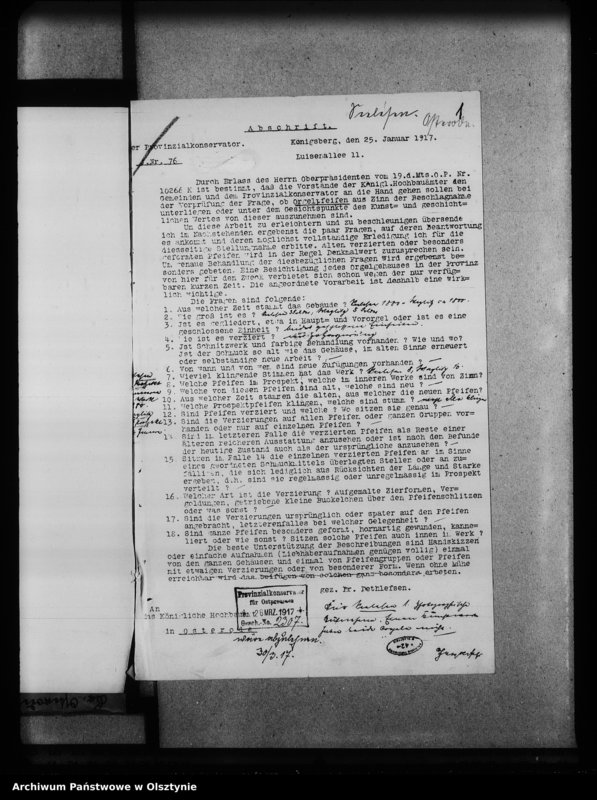 1
Abschrift.
Der Provinzialkonservator.
Königsberg, den 25. Januar 1917.
Nr. 76
Luisenallee 11.
Durch Erlass des Herrn Oberpräsidenten vom 19.d.Mts.O.P. Nr.
10266 K ist bestimmt, daß die Vorstände der Königl.Hochbauämter den
Gemeinden und dem Provinzialkonservator an die Hand gehen sollen bei
der Vorprüfung der Frage, ob Orgelpfeifen aus Zinn der Beschlagnahme
unterliegen oder unter dem Gesichtspunkte des Kunst= und geschicht=
lichen Wertes von dieser auszunehmen sind.
Um diese Arbeit zu erleichtern und zu beschleunigen übersende
ich im Nachstehenden ergebenst die paar Fragen, auf deren Beantwortung
es ankommt und deren möglichst vollständige Erledigung ich für die
diesseitige Stellungnahme erbitte. Alten verzierten oder besonders
geformten Pfeifen wird in der Regel Denkmalwert zuzusprechen sein.
Um genaue Behandlung der diesbezüglichen Fragen wird ergebenst be=
sonders gebeten. Eine Besichtigung jedes Orgelgehäuses in der Provinz
von hier für den Zweck verbietet sich schon wegen der nur verfüg=
baren kurzen Zeit. Die angeordnete Vorarbeit ist deshalb eine wirk=
lich wichtige.
Die Fragen sind folgende:
1. Aus welcher Zeit stammt das Gebäude ?
2. Wie groß ist es ?
3. Jst es gegliedert, etwa in Haupt= und Vororgel oder ist es eine
geschlossene Einheit ?
4. Wie ist es verziert ?
5. Jst Schnitzwerk und farbige Behandlung vorhanden ? Wie und wo?
Jst der Schmuck so alt wie das Gehäuse, im alten Sinne erneuert
oder selbständige neue Arbeit ?
6. Von wann und von wem sind neue Zufügungen vorhanden ?
7. Wieviel klingende Stimmen hat das Werk ?
8. Welche Pfeifen im Prospekt, welche im inneren Werke sind von Zinn?
9. Welche von diesen Pfeifen sind alt, welche sind neu ?
10. Aus welcher Zeit stammen die alten, aus welcher die neuen Pfeifen?
11. Welche Prospektpfeifen klingen, welche sind stumm ?
12. Sind Pfeifen verziert und welche ? Wo sitzen sie genau ?
13. Sind die Verzierungen auf allen Pfeifen oder ganzen Gruppen vor=
handen oder nur auf einzelnen Pfeifen ?
14. Sind im letzteren Falle die verzierten Pfeifen als Reste einer
älteren reicheren Ausstattung anzusehen oder ist nach dem Befunde
der heutige Zustand auch als der ursprüngliche anzusehen ?
15. Sitzen im Falle 14 die einzelnen verzierten Pfeifen an im Sinne
eines geordneten Schmuckmittels überlegten Stellen oder an zu=
fälligen, die sich lediglich aus Rücksichten der Länge und Stärke
ergeben, d.h. sind sie regelmässig oder unregelmässig im Prospekt
verteilt ?
16. Welcher Art ist die Verzierung ? Aufgemalte Zierformen, Ver=
goldungen, getriebene kleine Buckelchen über den Pfeifenschlitzen
oder was sonst ?
17. Sind die Verzierungen ursprünglich oder später auf den Pfeifen
angebracht, letzterenfalles bei welcher Gelegenheit ?
18. Sind ganze Pfeifen besonders geformt, hornartig gewunden, kanne=
liert oder wie sonst ? Sitzen solche Pfeifen auch innen im Werk ?
Die beste Unterstützung der Beschreibungen sind Handskizzen
oder einfache Aufnahmen (Liebhaberaufnahmen genügen völlig) einmal
von den ganzen Gehäusen und einmal von Pfeifengruppen oder Pfeifen
mit etwaigen Verzierungen oder von besonderer Form. Wenn ohne Mühe
erreichbar wird das Beifügen von solchen ganz besonders erbeten.
gez. Dr. Dethlefsen.
An
das Königliche Hochbauamt
in Osterode
Provinzialkonservator
für Ostpreussen
26 MRZ. 1917
Gesch. No. 2307
30/3.17.
Archiwum Państwowe w Olsztynie